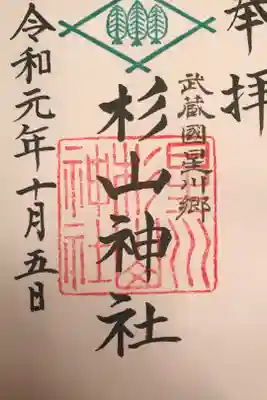 奉拝
武蔵國星川郷
杉山神社
星川杉山神社
令和元年十月五日